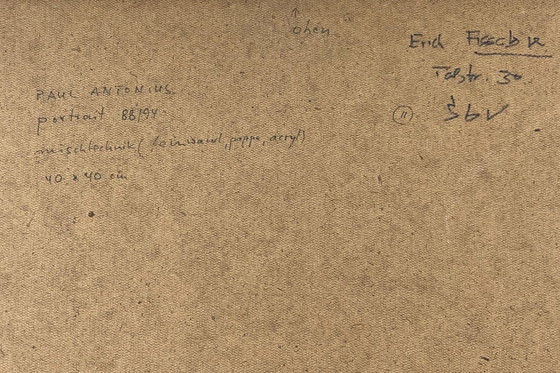 ↑
oben
Erich Fischer
Talstr. 30
PAUL ANTONIUS
portrait 88/94
(11) Sbv
mischtechnik (leinwand, pappe, acryl)
40 x 40 cm